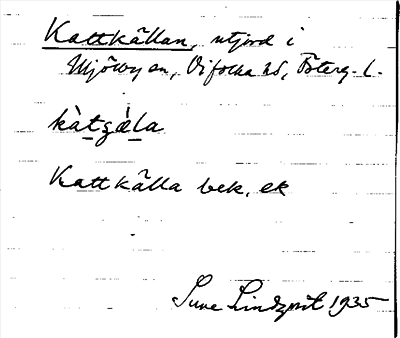 Kattkällan, utjord i
Mjölby sn, Vifolka hd, Österg. l.
kàtɕä̀la
Kattkälla bek. ek
Sune Lindqvist 1935